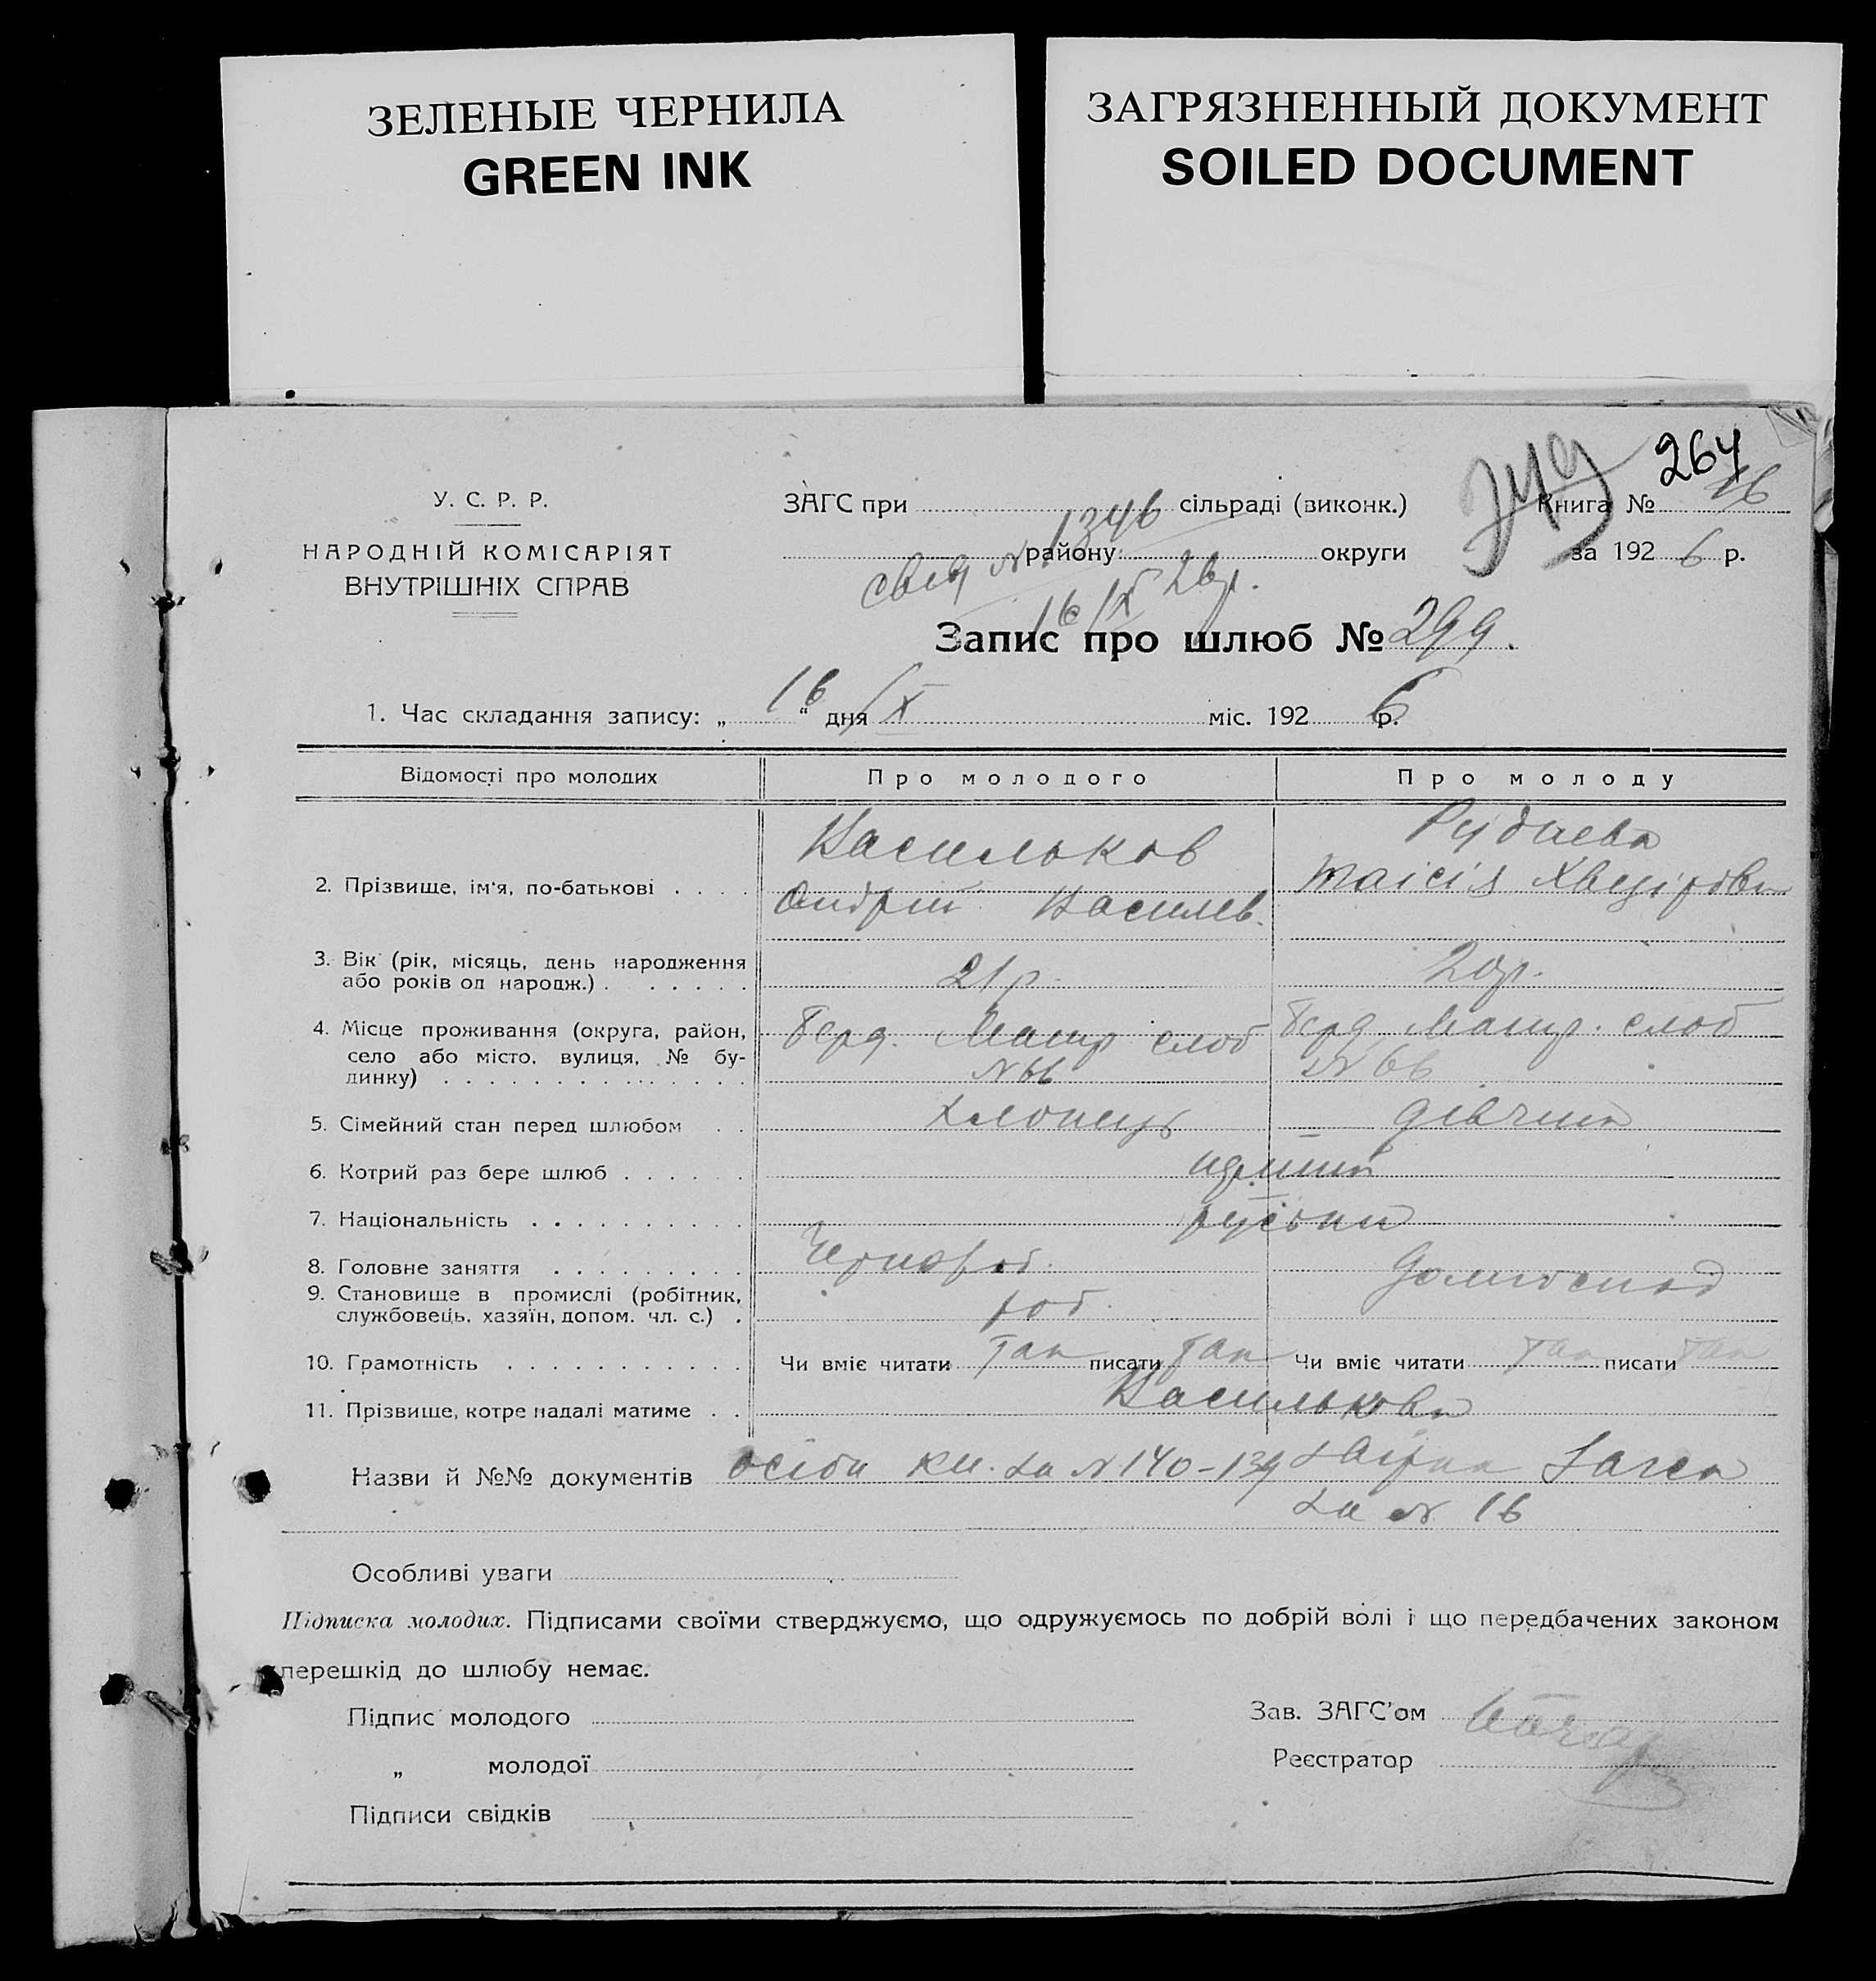 ЗЕЛЕНЫЕ ЧЕРНИЛА
GREEN INK
ЗАГРЯЗНЕННЫЙ ДОКУМЕНТ
SOILED DOCUMENT
264
У. С. Р. Р.
НАРОДНІЙ КОМІСАРІЯТ
ВНУТРІШНІХ СПРАВ
ЗАГС при сільраді (виконк.)
Книга № 16
району округи
за 1926 р.
свід № 1346
16/IX 26р.
Запис про шлюб № 299.
1. Час складання запису: „16“ дня IX міс. 1926 р.
Відомості про молодих
Про молодого
Про молоду
2. Прізвище, ім'я, по-батькові . . . .
Васильков
Андрій Василев.
Таісія
3. Вік (рік, місяць, день народження
або років од народж.) . . . . . .
21 р.
20 р.
4. Місце проживання (округа, район,
село або місто, вулиця, № бу-
динку) . . . . . . . . . . . . . .
Берд. слоб
№ 66
Берд. слоб
№ 66
5. Сімейний стан перед шлюбом . .
хлопець
дівчина
6. Котрий раз бере шлюб . . . . . .
7. Національність . . . . . . . . . .
8. Головне заняття . . . . . . . . .
Чорнороб.
9. Становище в промислі (робітник,
службовець, хазяїн, допом. чл. с.) .
роб.
10. Грамотність . . . . . . . . . . .
Чи вміє читати так писати так
Чи вміє читати так писати так
11. Прізвище, котре надалі матиме . .
Василькови
Назви й №№ документів
кн. за № 140-139
за № 16
Особливі уваги
Підписка молодих. Підписами своїми стверджуємо, що одружуємось по добрій волі і що передбачених законом
перешкід до шлюбу немає.
Підпис молодого
Зав. ЗАГС'ом
„ молодої
Реєстратор
Підписи свідків